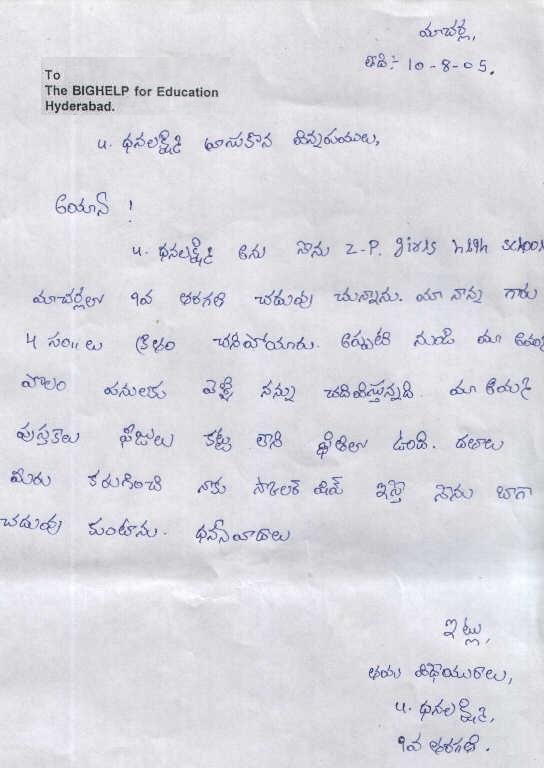 మాచర్ల,
తేది:- 10-8-05.
To
The BIGHELP for Education
Hyderabad.
u. ధనలక్ష్మి వ్రాసుకొన్న విన్నపములు,
అయ్యా !
u. ధనలక్ష్మి అను నేను Z.P. girls high school
మాచర్లలో 9వ తరగతి చదువు చున్నాను. మా నాన్న గారు
4 సం॥లు క్రితం చనిపోయారు. అప్పటి నుండి మా అమ్మ
పొలం పనులకు వెళ్ళి నన్ను చదివిస్తున్నది. మా అమ్మకి
పుస్తకాలు ఫీజులు కట్ట లేని స్థితిలో ఉంది. దయతో
మీరు కరుణించి నాకు స్కాలర్ షిప్ ఇస్తే నేను బాగా
చదువు కుంటాను. ధన్యవాదాలు
ఇట్లు,
తమ విధేయురాలు,
u. ధనలక్ష్మి,
9వ తరగతి.